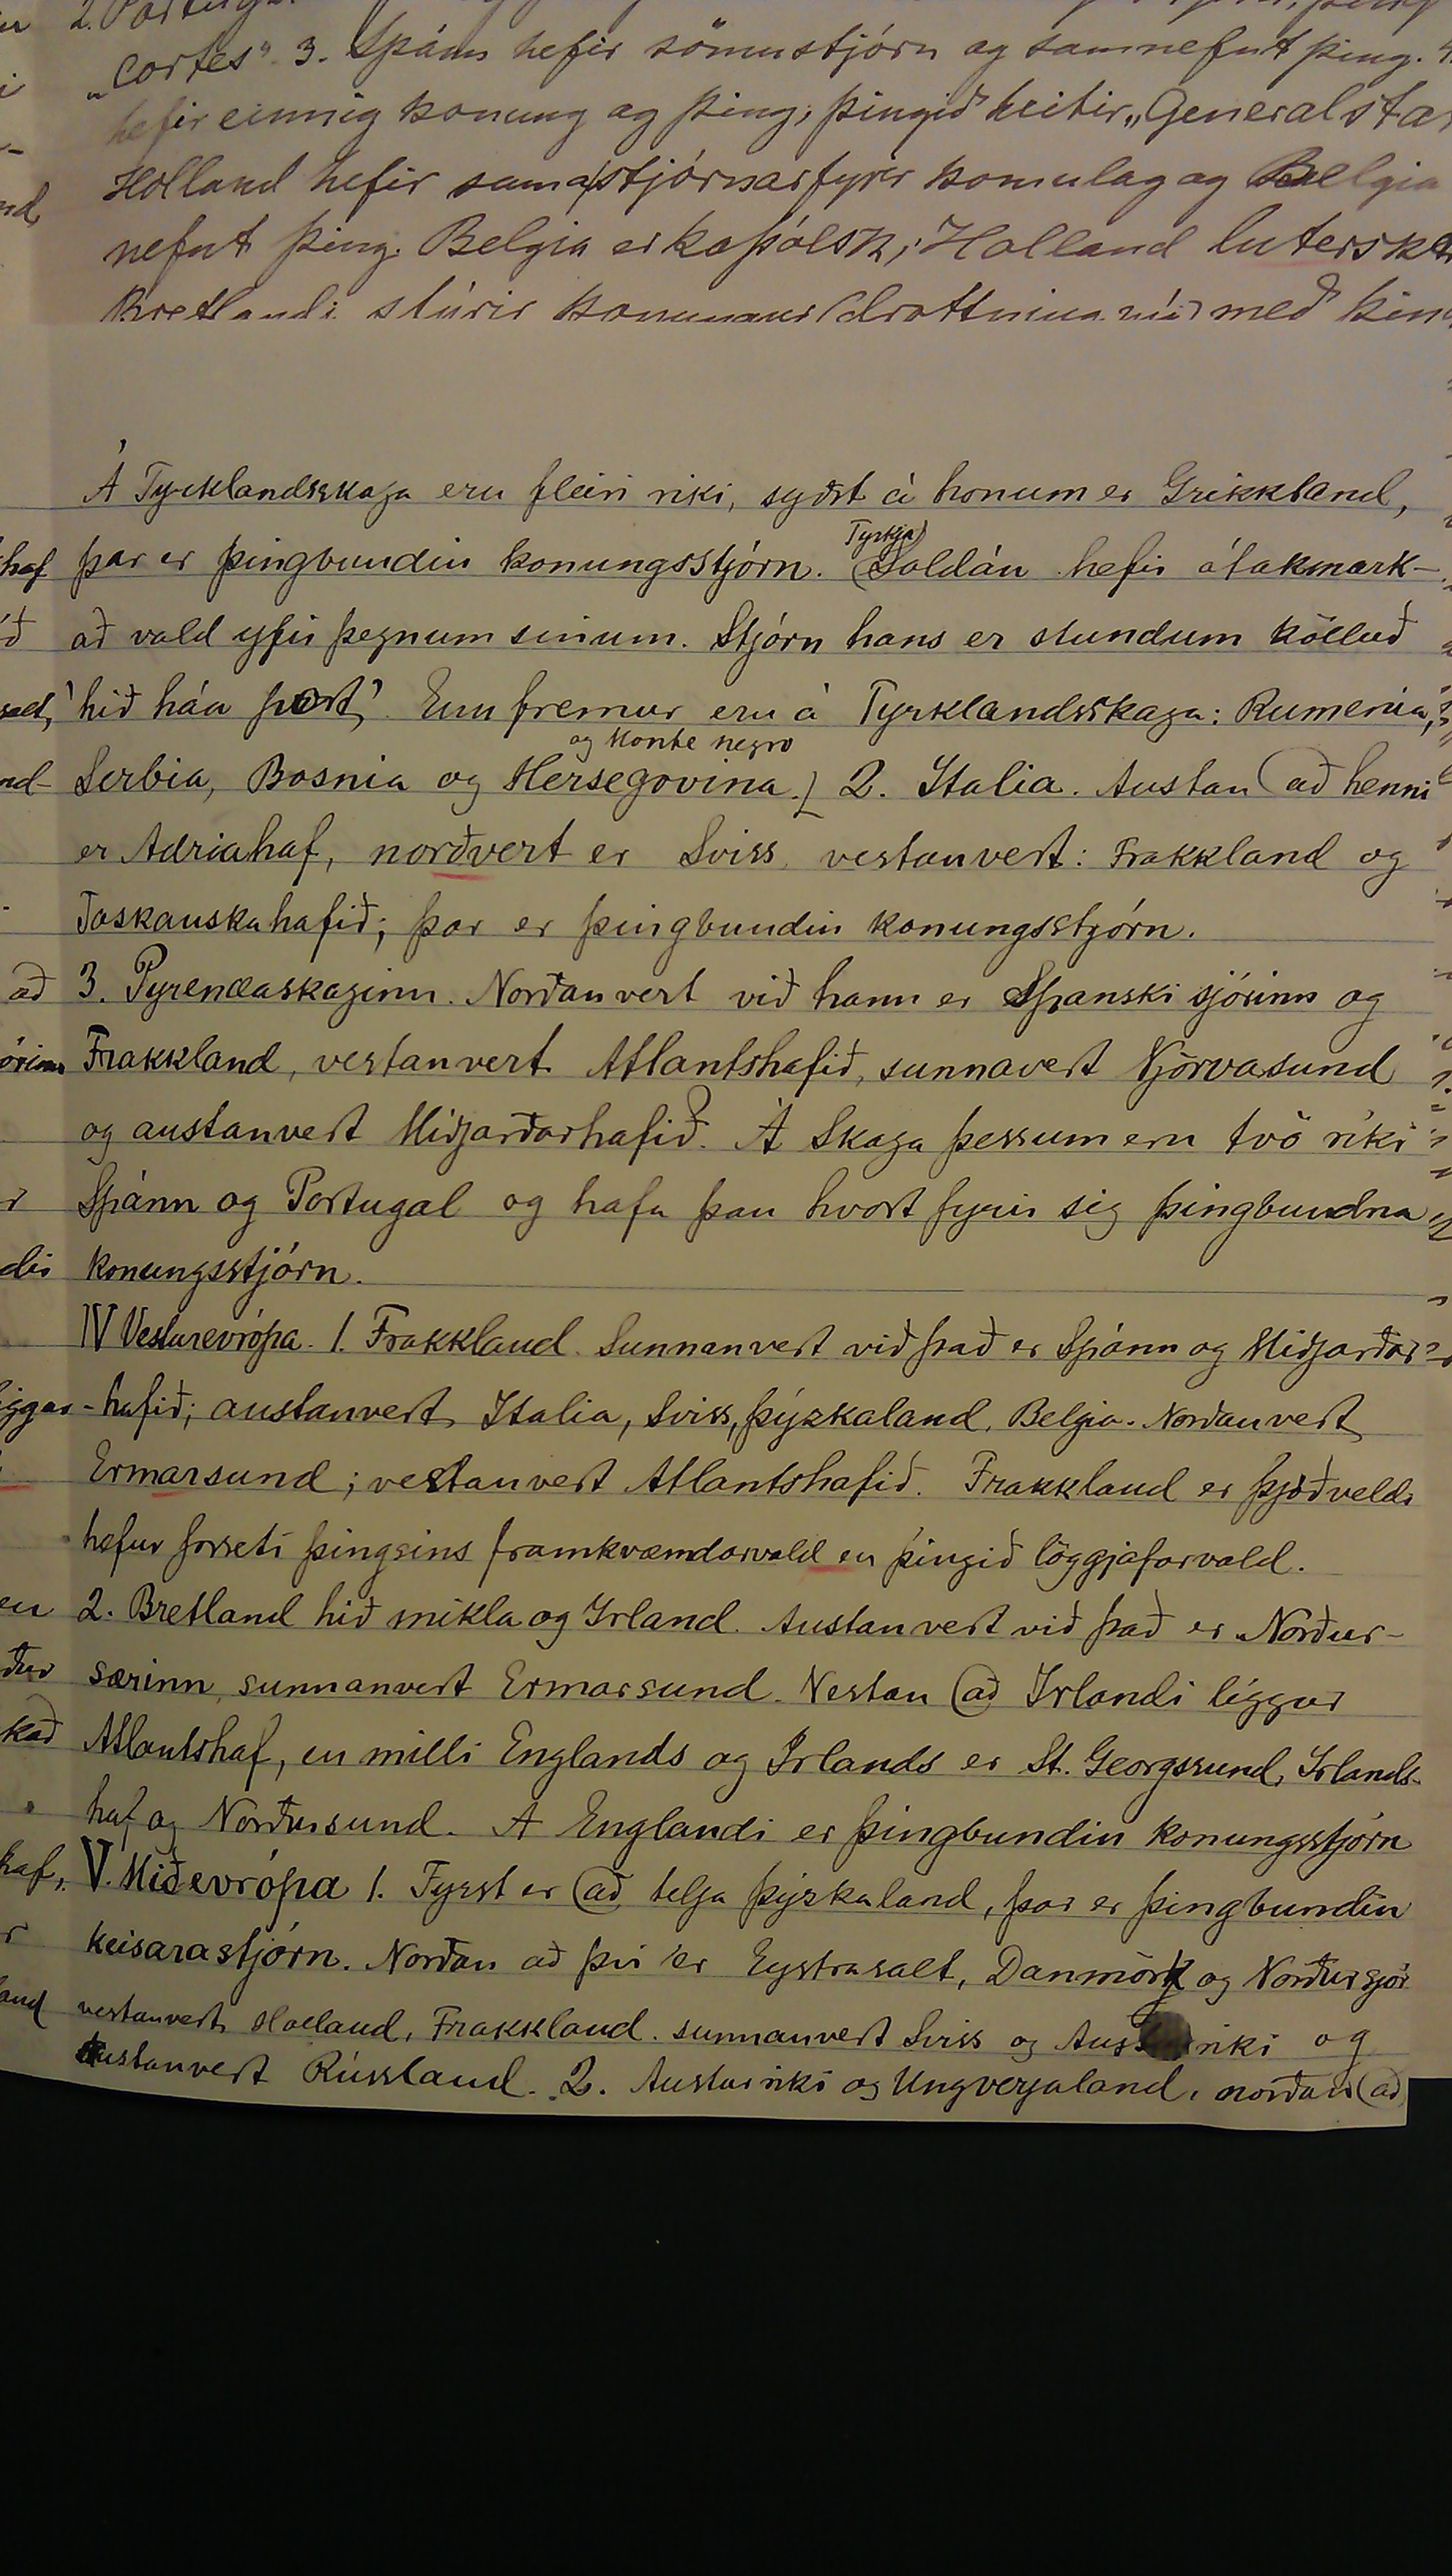 2. Portuga
„Cortes". 3. Spánn hefir sömu stjórn og samnefnt þing. 4.
hefir einnig konung og þing, þingið heitir „Generalstar
Holland hefir sama stjórnarfyrir komulag og Belgia
nefnt þing. Belgia er kaþólsk, Holland luterskt
Bretlandi stúrir konungur (drottning nú) með þing
Á Tyrklandsskaga eru fleiri riki, syðst á honum er Grikkland,
haf þar er þingbundin konungsstjórn. Tyrkja Soldán hefir ótakmark-
að vald yfir þegnum sinum. Stjórn hans er stundum kölluð
'hið háa port'. Enn fremur eru á Tyrklandsskaga: Rumenia,
og Monte negro
Serbia, Bosnia og Hersegovina. 2. Italia. Austan að henni
er Adriahaf, norðvert er Sviss, vestanvert: Frakkland og
Toskanskahafið; þar er þingbundin konungsstjórn.
að 3. Pyrenæaskaginn. Norðanvert við hann er Spanski sjórinn og
Frakkland, vestanvert Atlantshafið, sunnavert Njörvasund
og austanvert Miðjarðarhafið. Á Skaga þessum eru tvö ríki
Spánn og Portugal og hafa þau hvort fyrir sig þingbundna
konungsstjórn.
IV Vesturevrópa. 1. Frakkland. Sunnanvert við það er Spánn og Miðjarðar-
-hafið; austanvert Italia, Sviss, Þýzkaland, Belgia. Norðanvert
Ermarsund; vestanvert Atlantshafið. Frakkland er þjóðveldi
hefur forseti þingsins framkvæmdarvald en þingið löggjafarvald.
en 2. Bretland hið mikla og Irland. Austanvert við það er Norður-
særinn, sunnanvert Ermarsund. Vestan að Irlandi liggur
Atlantshaf, en milli Englands og Irlands er St. Georgssund, Irlands-
haf og Norðursund. A Englandi er þingbundin konungsstjórn
haf, V. Miðevrópa 1. Fyrst er að telja Þýzkaland, þar er þingbundin
keisarastjórn. Norðan að því er Eystrasalt, Danmörk og Norðursjór
vestanvert Holland, Frakkland. sunnanvert Sviss og Austurriki og
austanvert Rússland. 2. Austurriki og Ungverjaland, norðan að